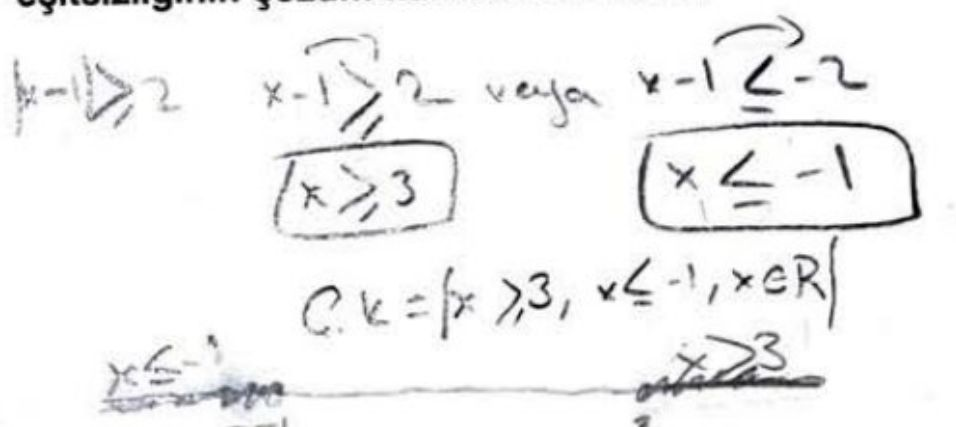 eşitsizliğinin çözüm
|x-1|≥2 x-1≥2 veya x-1≤-2
x≥3 x≤-1
Ç.K=|x≥3, x≤-1, x∈R|
x≤-1 x≥3
-1 3